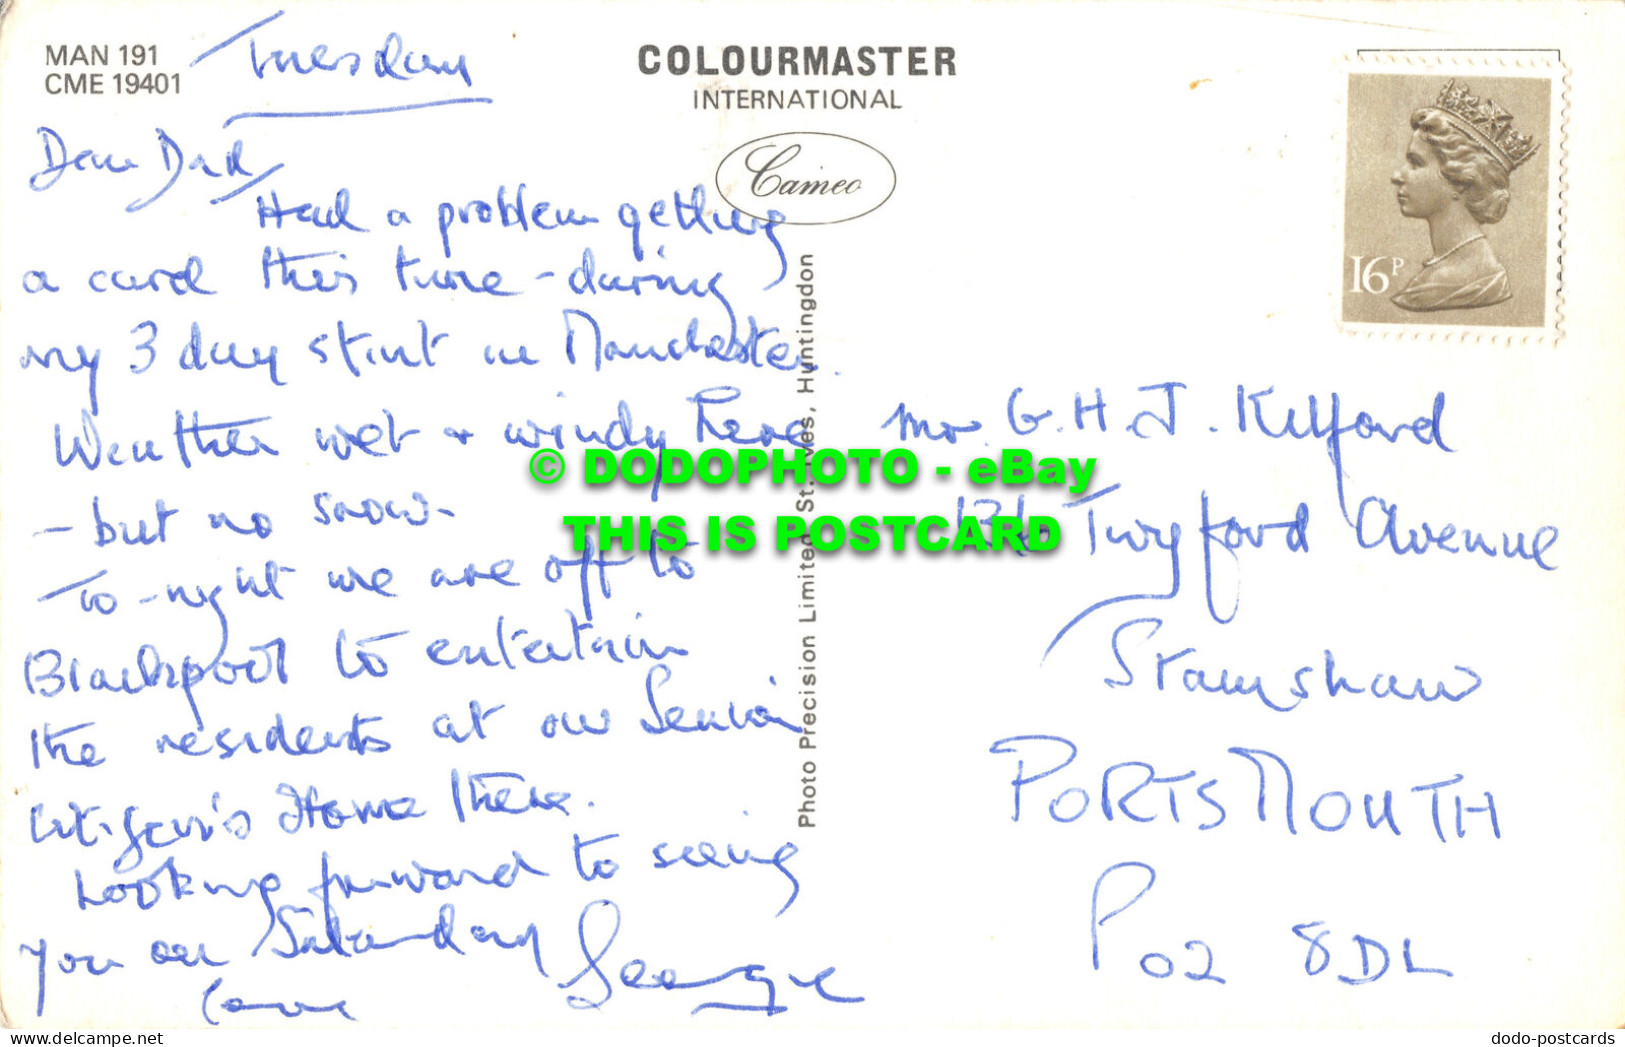 MAN 191
CME 19401
Tuesday
COLOURMASTER
INTERNATIONAL
Cameo
16P
Dear Dad,
Had a problem getting
a card this time - during
my 3 day stint in Manchester.
Weather wet + windy here
- but no snow.
To-night we are off to
Blackpool to entertain
the residents at our Senior
Citizen's Home there.
Looking forward to seeing
you on Saturday
Love George
Photo Precision Limited, St. Ives, Huntingdon
Mr. G. H. J. Kelford
136 Twyford Avenue
Stamshaw
PORTSMOUTH
PO2 8DL
© DODOPHOTO - eBay
THIS IS POSTCARD
dodo-postcards